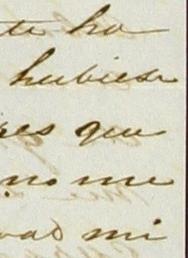 te ha
hubiese
es que
no me
mi